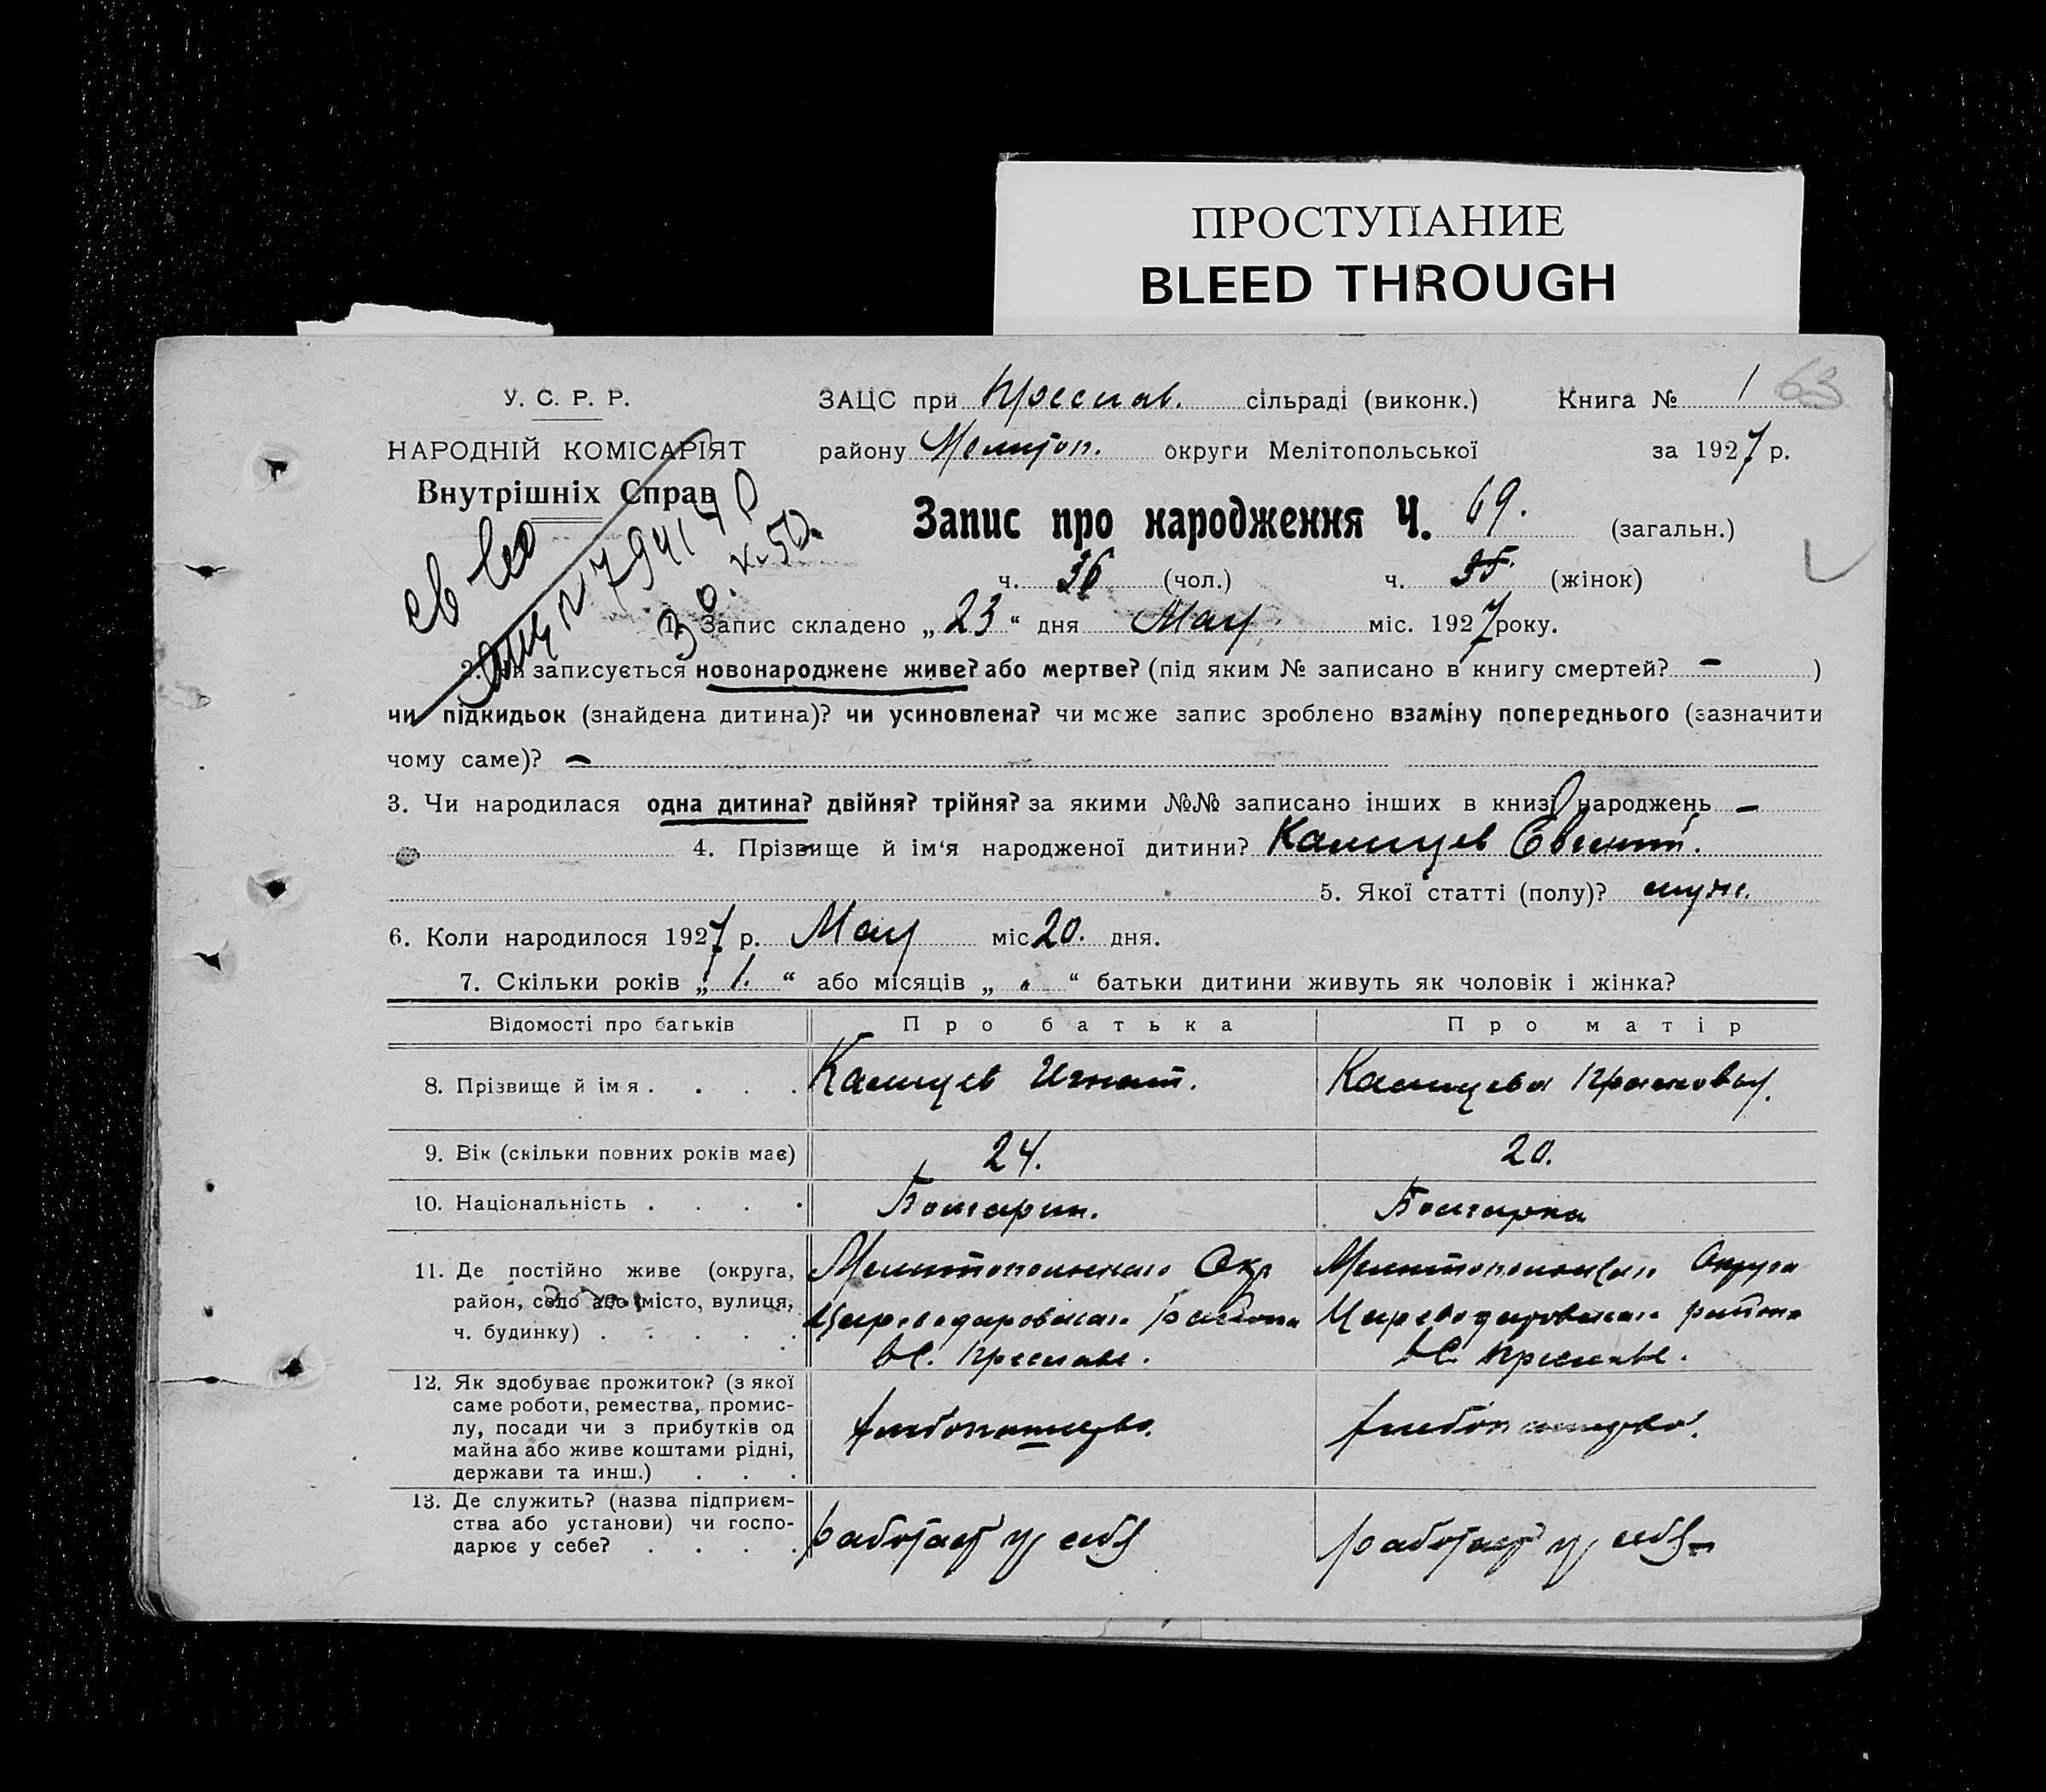 ПРОСТУПАНИЕ
BLEED THROUGH
У. С. Р. Р.
НАРОДНІЙ КОМІСАРІЯТ
Внутрішніх Справ
ЗАЦС при Преслав. сільраді (виконк.) Книга № 1 63
району Мелитоп. округи Мелітопольської за 1927 р.
Запис про народження Ч. 69. (загальн.)
ч. 36 (чол.) ч. (жінок)
1. Запис складено „23“ дня Мая міс. 1927 року.
2. Чи записується новонароджене живе? або мертве? (під яким № записано в книгу смертей? – )
чи підкидьок (знайдена дитина)? чи усиновлена? чи може запис зроблено взаміну попереднього (зазначити
чому саме)? –
3. Чи народилася одна дитина? двійня? трійня? за якими №№ записано інших в книзі народжень –
4. Прізвище й ім‘я народженої дитини?
5. Якої статті (полу)? муж.
6. Коли народилося 1927 р. Мая міс 20. дня.
7. Скільки років „ 1. “ або місяців „ “ батьки дитини живуть як чоловік і жінка?
Відомості про батьків Про батька Про матір
8. Прізвище й ім я . . . . Игнат.
9. Вік (скільки повних років має) 24. 20.
10. Національність . . . . Болгарин. Болгарка
11. Де постійно живе (округа, Мелитопольского Окр Мелитопольского Округа
район, село або місто, вулиця, Цареводаровского района Цареводаровского района
ч. будинку) . . . . . в С. Преславе. в С. Преславе.
12. Як здобуває прожиток? (з якої
саме роботи, ремества, промис-
лу, посади чи з прибутків од хлебопашество. хлебопашество.
майна або живе коштами рідні,
держави та инш.) . . .
13. Де служить? (назва підприєм-
ства або установи) чи госпо- работает у себя работает у себя
дарює у себе? . . . .